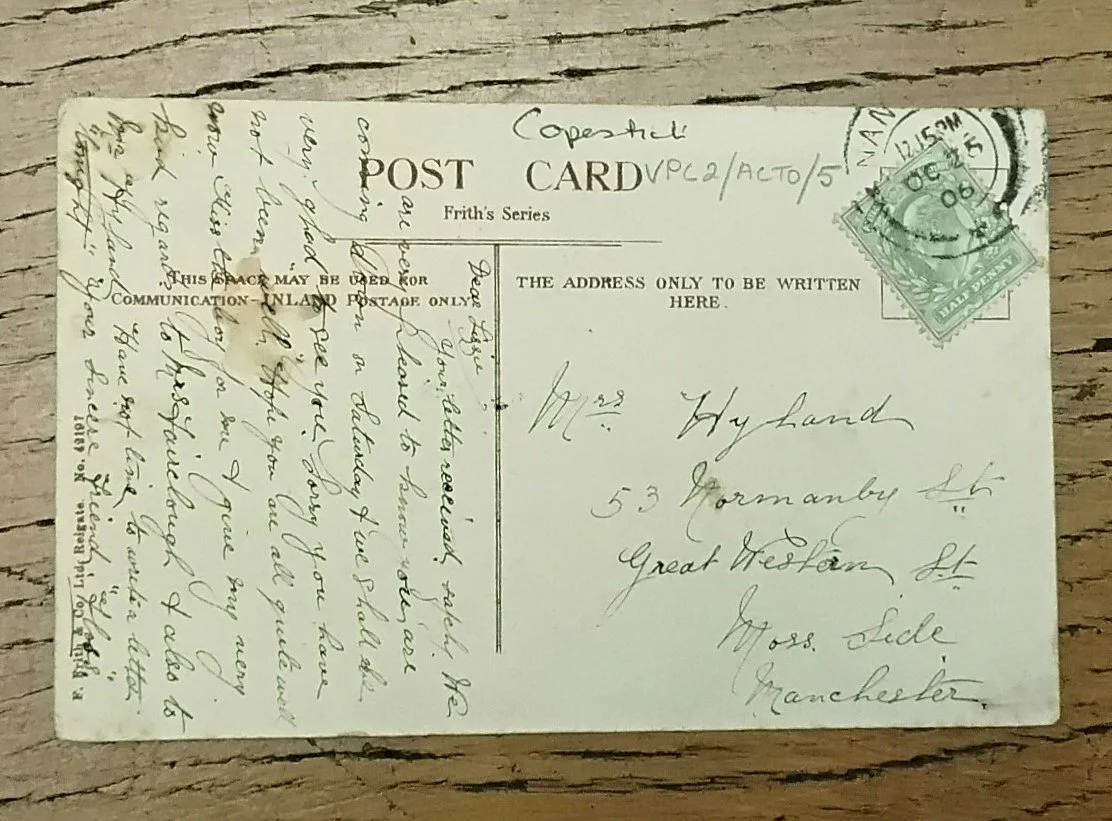 Copestick
POST CARD
VPC2/ACTO/5
Frith's Series
THIS SPACE MAY BE USED FOR
COMMUNICATION—INLAND POSTAGE ONLY
THE ADDRESS ONLY TO BE WRITTEN
HERE.
12.15PM
OC 25
06
HALF PENNY
Mrs Hyland
53 Normanby St
Great Western St
Moss Side
Manchester
Dear Lizzie
Your letter received safely We
are very pleased to know you are
coming down on Saturday & we shall be
very glad to see you. Sorry you have
not been well Hope you are all quite well
now for me & give my very
kind regards to Mrs Fairclough & also to
Hyland Have not time to write a letter
tonight Your Sincere Friend
F. Frith & Co. Ltd., Reigate. No.